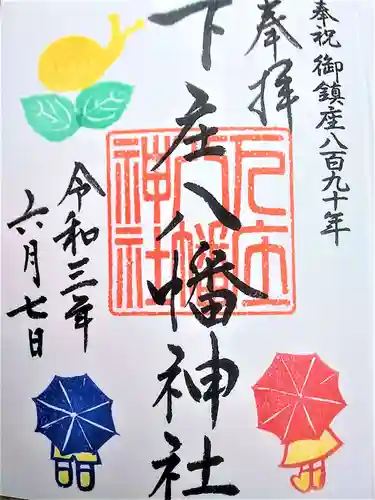 奉祝 御鎮座八百九十年
奉拝
下庄八幡神社
下庄
八幡
神社
令和三年
六月七日